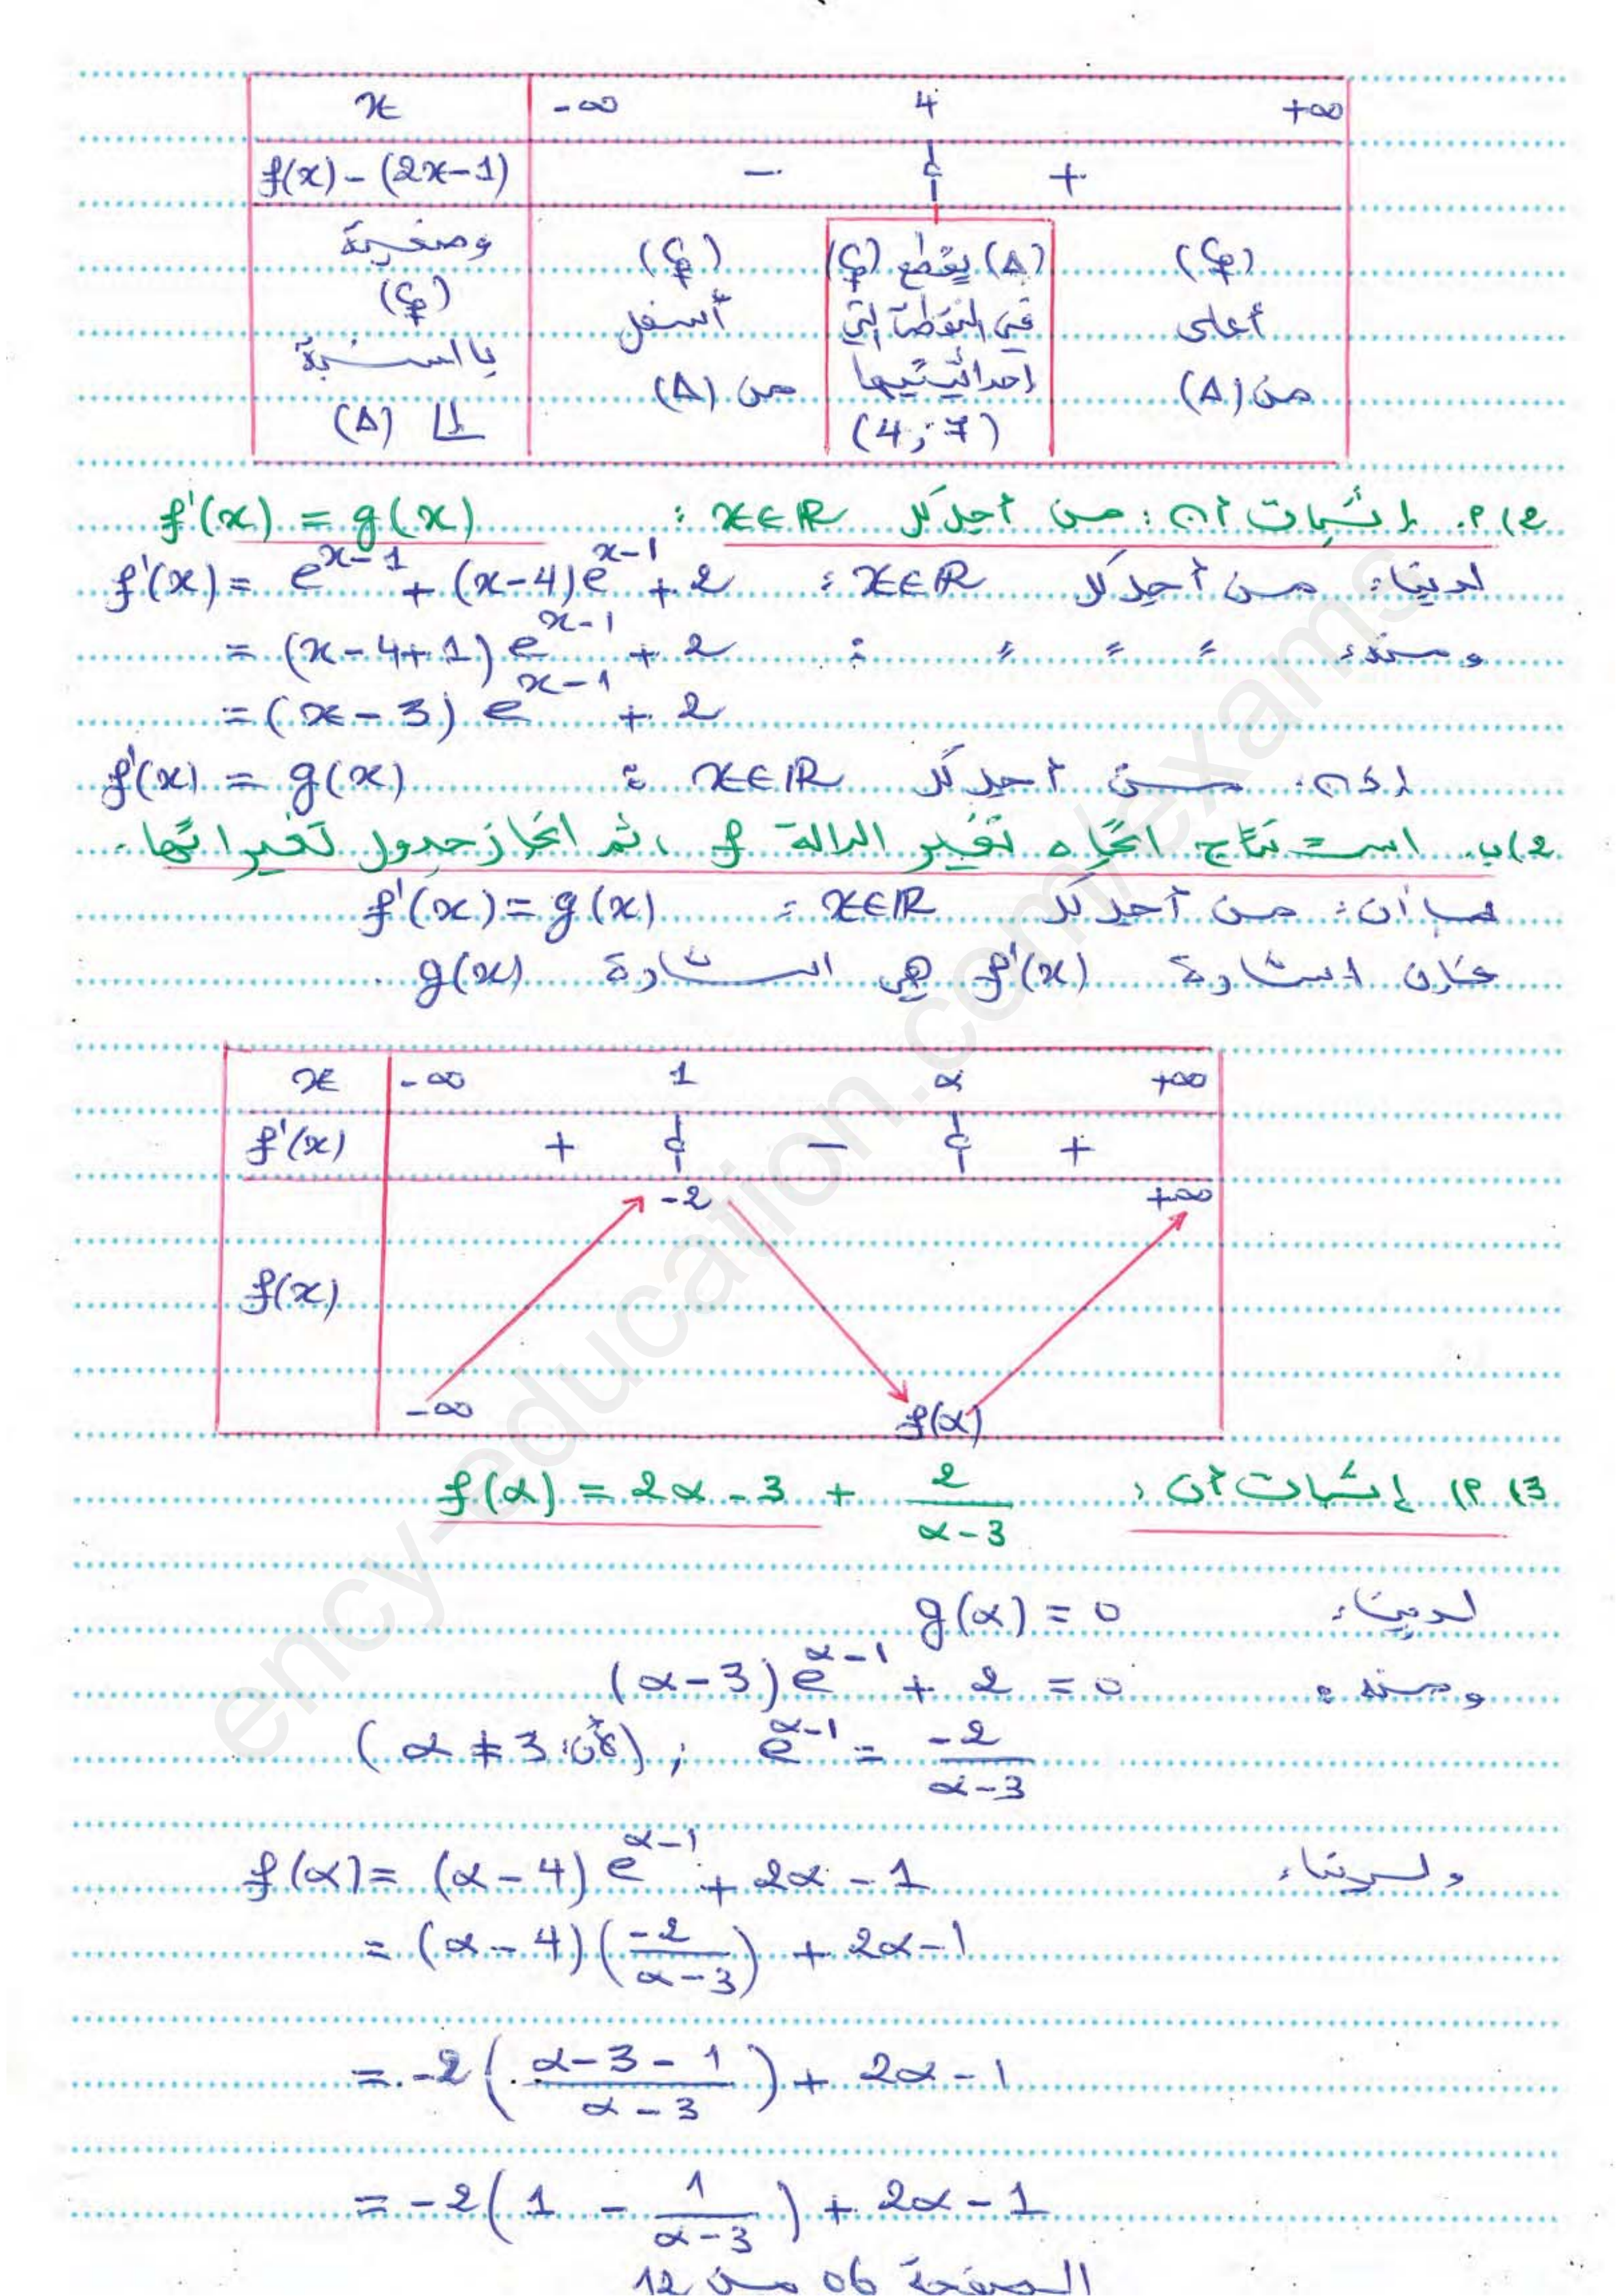 x | -∞ 4 +∞
f(x) - (2x-1) | - 0 +
وضعية (Cf) بالنسبة إلى (Δ) | (Cf) أسفل من (Δ) | (Δ) يقطع (Cf) في النقطة التي إحداثيتيها (4;7) | (Cf) أعلى من (Δ)
2) أ. إثبات أن: من أجل كل x∈ℝ : f'(x) = g(x)
لدينا: من أجل كل x∈ℝ : f'(x) = e^{x-1} + (x-4)e^{x-1} + 2
ومنه: " " " : = (x-4+1)e^{x-1} + 2
= (x-3)e^{x-1} + 2
إذن: من أجل كل x∈ℝ : f'(x) = g(x)
2) ب. استنتاج اتجاه تغير الدالة f ، ثم انجاز جدول تغيراتها.
بما أن: من أجل كل x∈ℝ : f'(x) = g(x)
فإن اشارة f'(x) هي اشارة g(x).
x | -∞ 1 α +∞
f'(x) | + 0 - 0 +
f(x) | -∞ -2 f(α) +∞
3) أ) إثبات أن: f(α) = 2α - 3 + 2/(α-3)
لدينا: g(α) = 0
ومنه: (α-3)e^{α-1} + 2 = 0
e^{α-1} = -2/(α-3) ; (لأن: α≠3)
ولدينا: f(α) = (α-4)e^{α-1} + 2α - 1
= (α-4)(-2/(α-3)) + 2α-1
= -2((α-3-1)/(α-3)) + 2α-1
= -2(1 - 1/(α-3)) + 2α-1
الصفحة 06 من 12
ency-education.com/exams